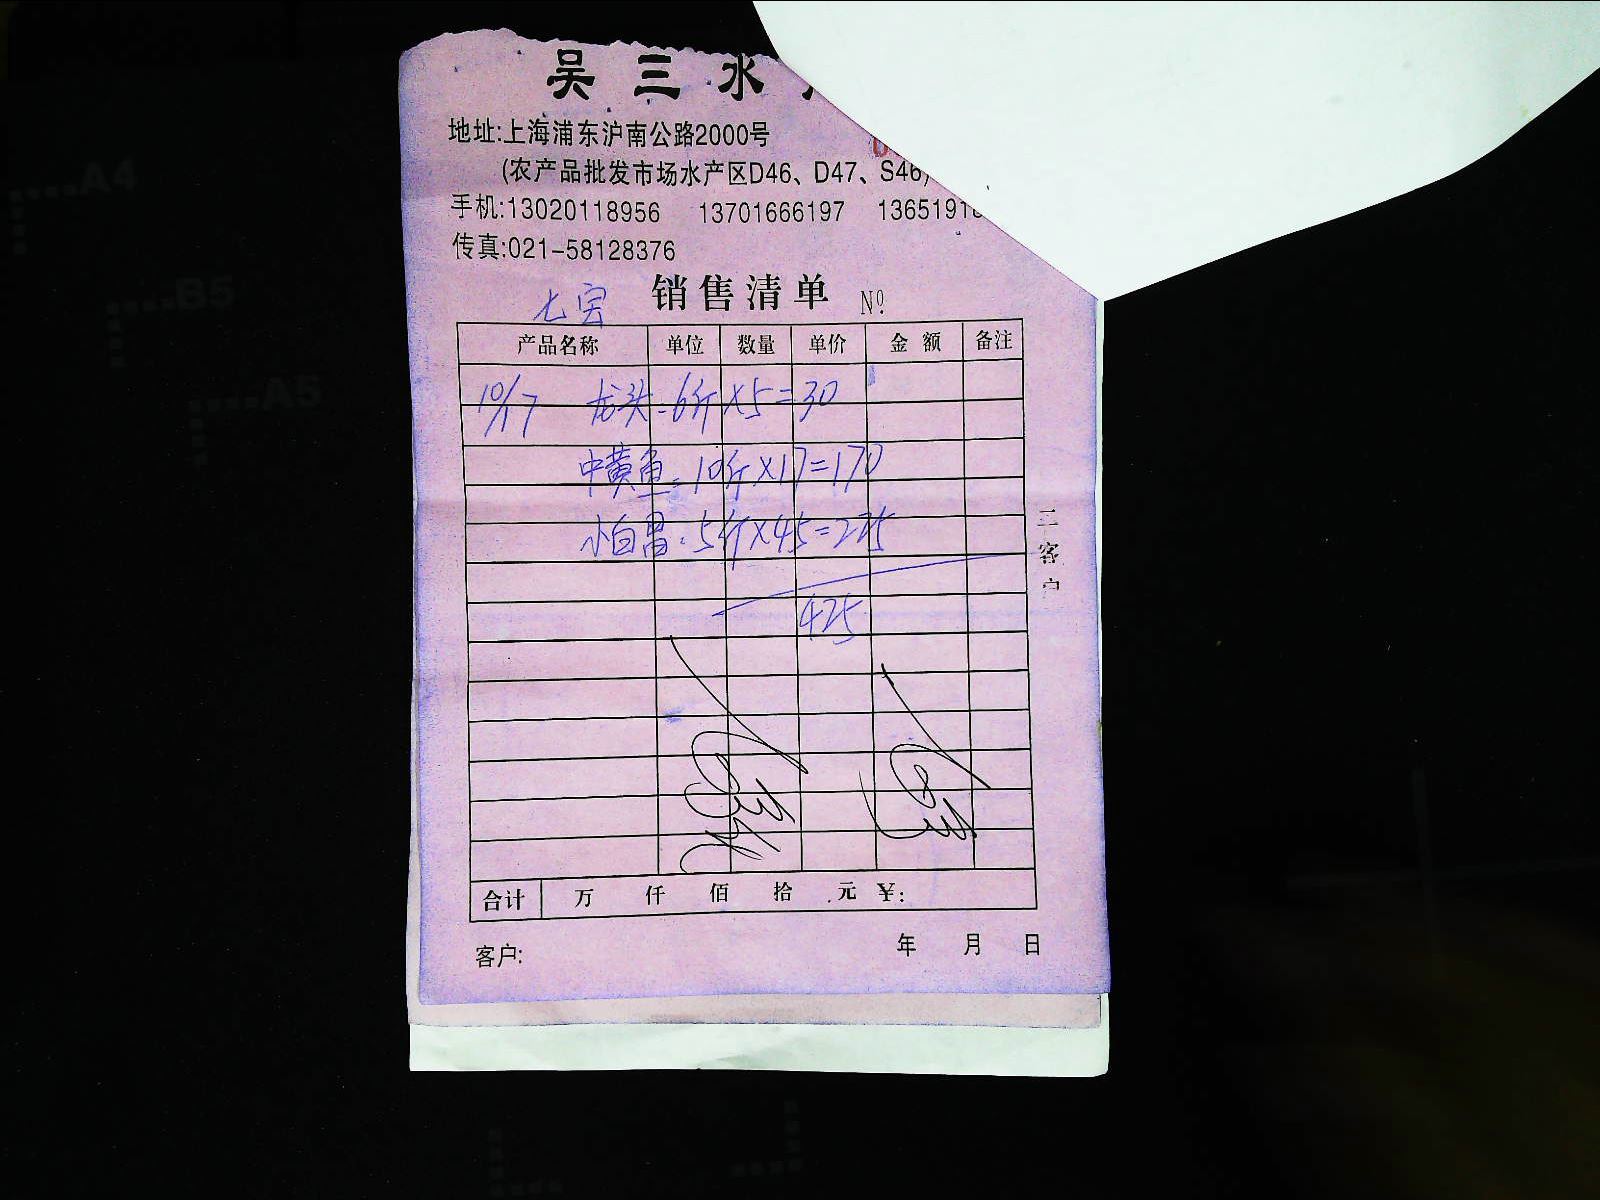 吴三水
地址:上海浦东沪南公路2000号
(农产品批发市场水产区D46、D47、S46)
手机:13020118956 13701666197 1365191
传真:021-58128376
七宝 销售清单 Nº
产品名称 单位 数量 单价 金额 备注
10/17 龙头:6斤×5=30
中黄鱼:10斤×17=170
小白昌:5斤×45=225
425
二客户
合计 万 仟 佰 拾 元 ¥:
客户: 年 月 日
A4
B5
A5